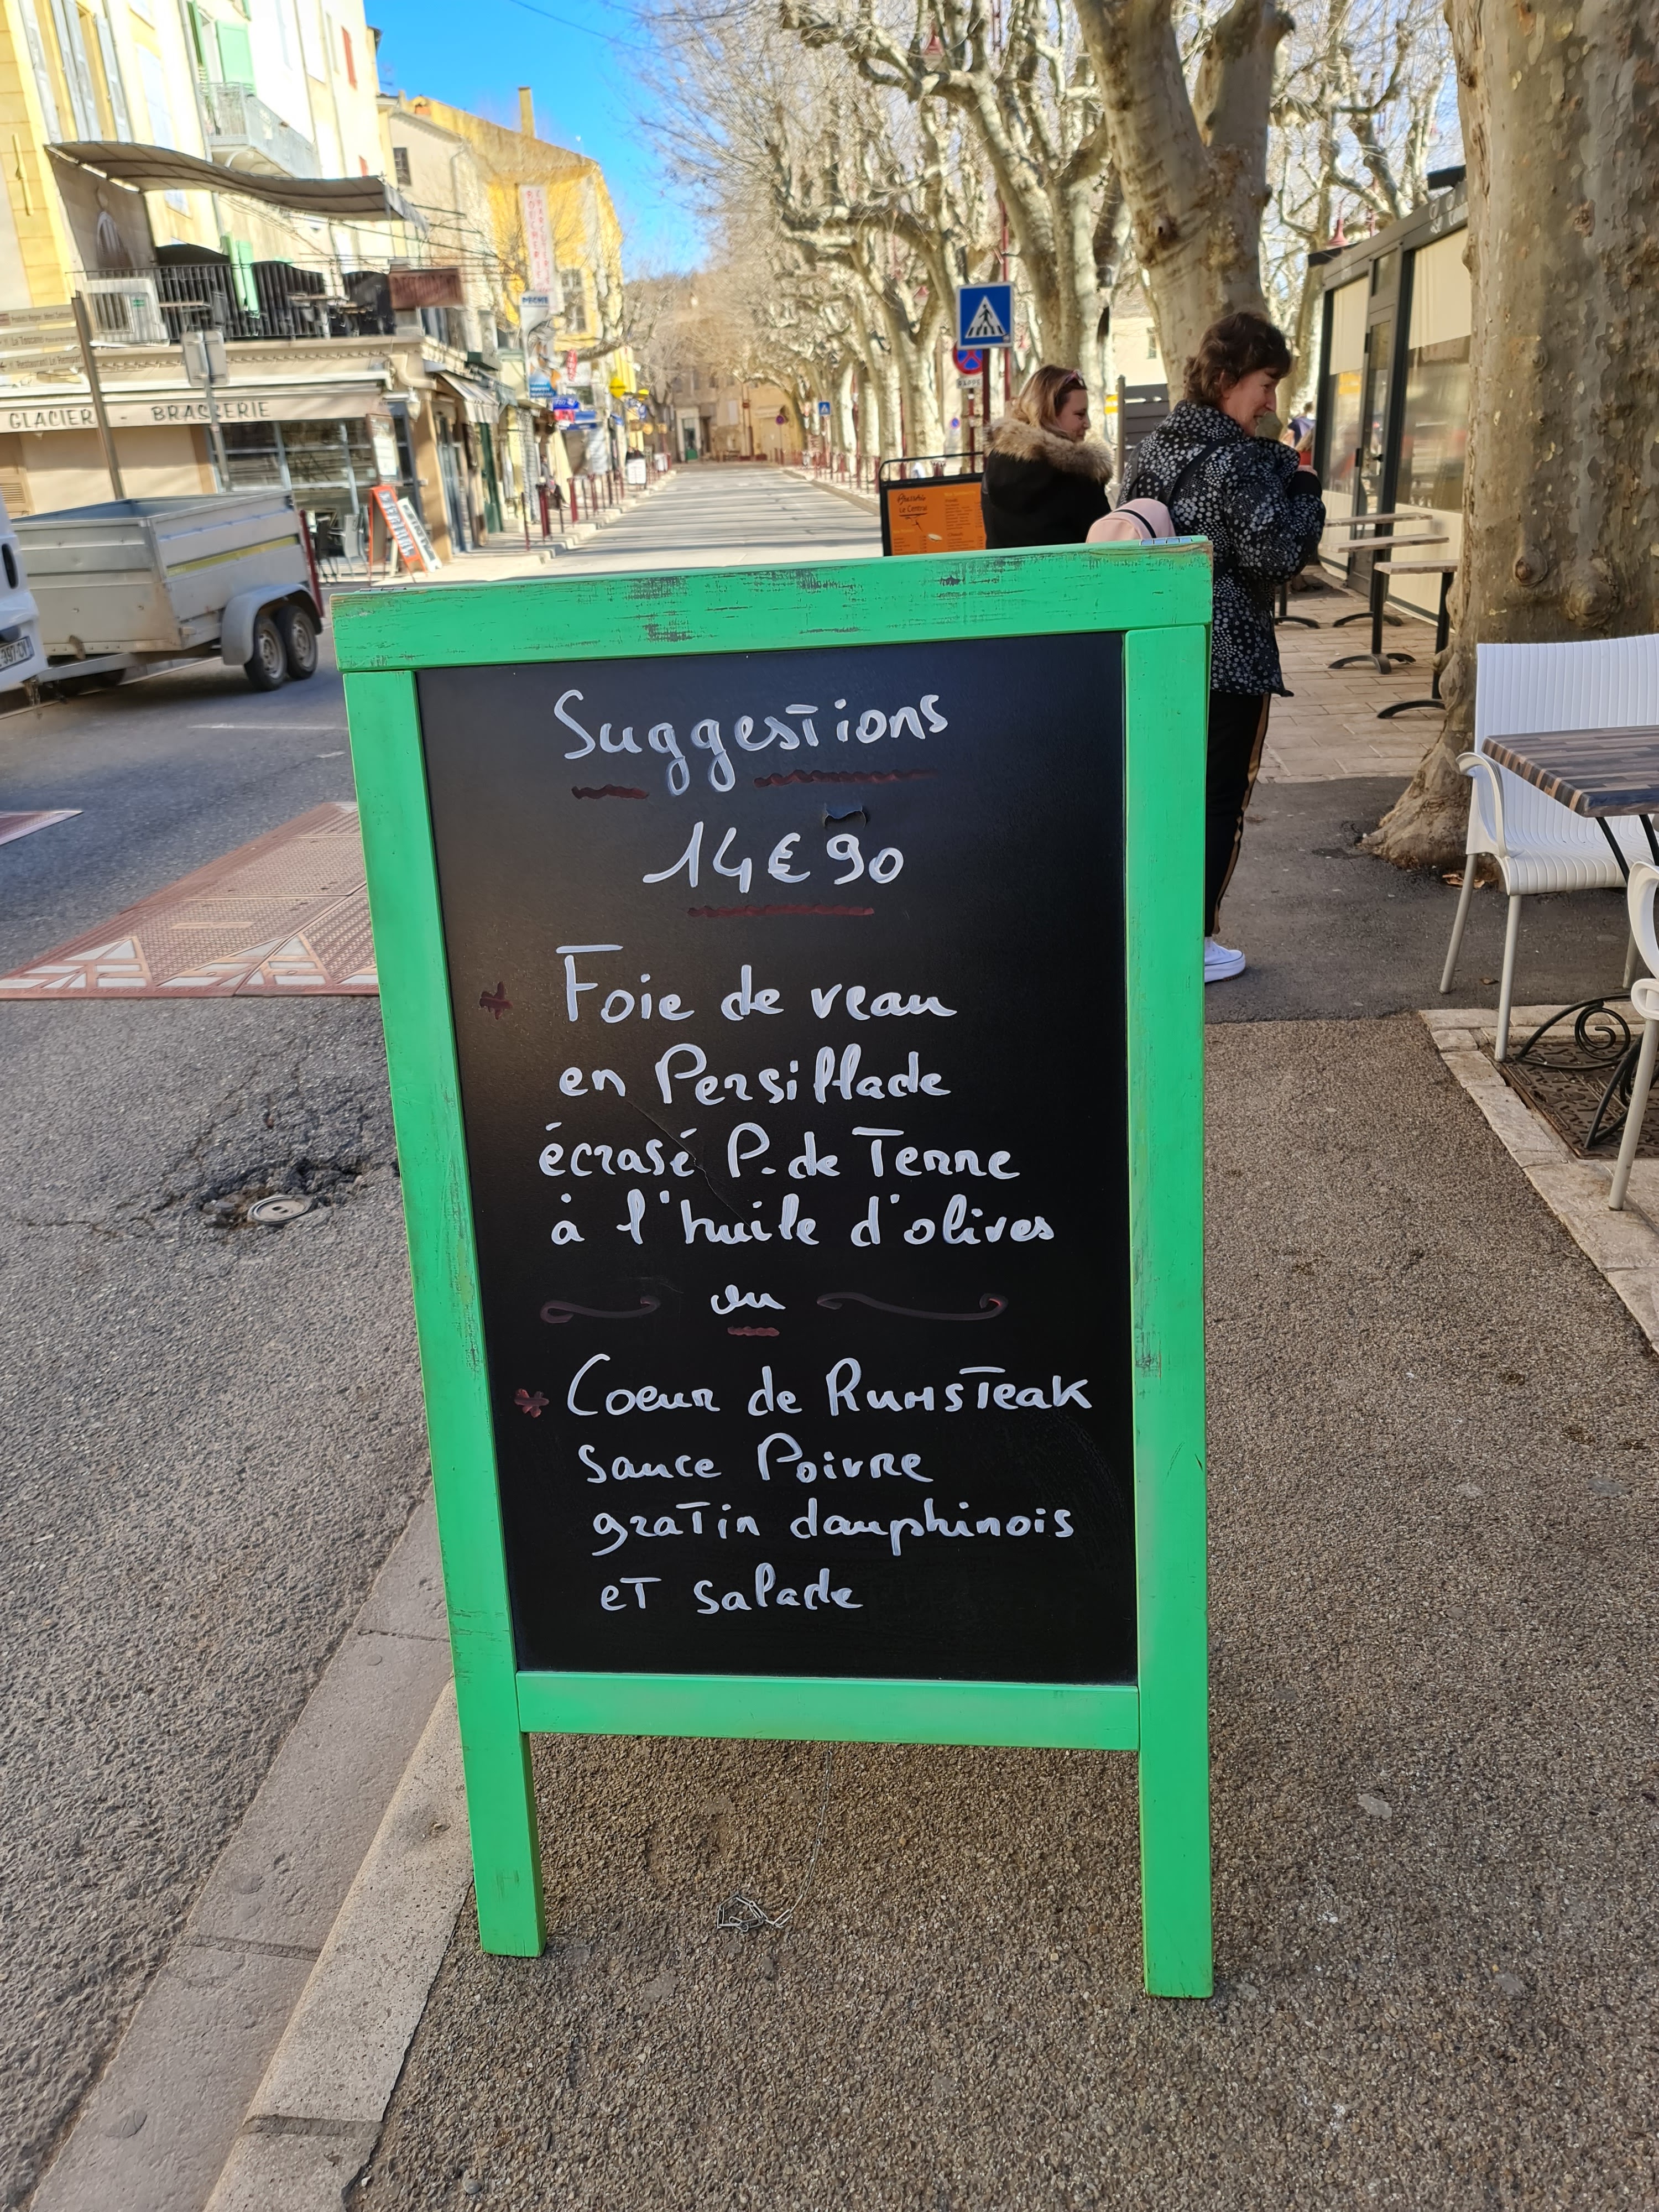 GLACIER - BRASSERIE
PÊCHE
Suggestions
14€90
* Foie de veau
en Persillade
écrasé P. de Terre
à l'huile d'olives
ou
* Coeur de Rumsteak
sauce Poivre
gratin dauphinois
et salade